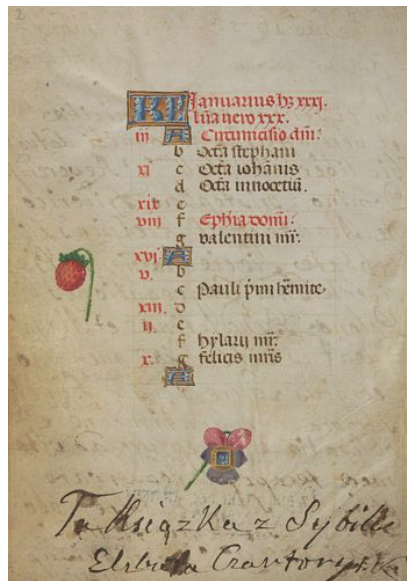 2
KL Januarius hz xxxi.
luna vero xxx.
iii A Circumcisio dni:
b Octa stephani
xi c Octa iohanis
d Octa innocetiu.
xix e
viii f Ephia domi:
g valentini mr.
xvi A
v. b
c Pauli pimi hemite.
xiii. d
ii. e
f hylarii mr.
x. g felicis mris
A
Ta Książka z Sybille
Elzbieta Czartoryska